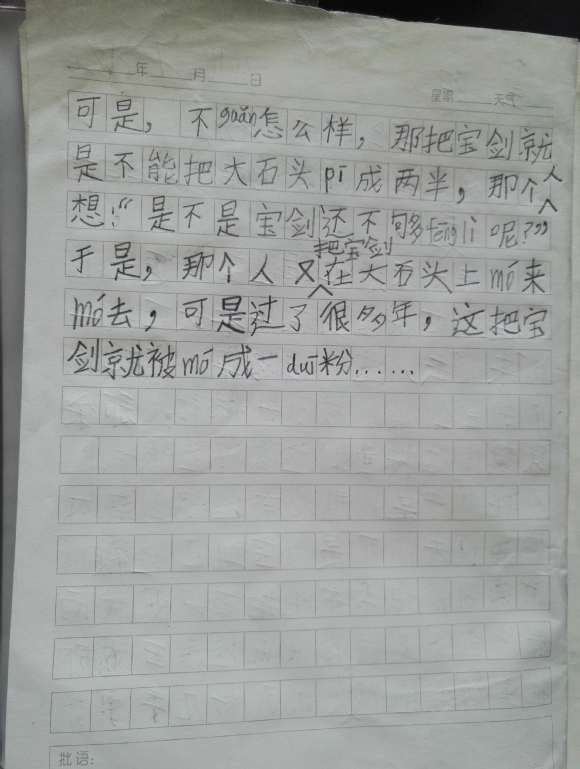 年 月 日
星期 天气
可是，不guǎn怎么样，那把宝剑就
是不能把大石头pī成两半，那个人
想：“是不是宝剑还不够fēnglì呢？”
于是，那个人又把宝剑在大石头上mó来
mó去，可是过了很多年，这把宝
剑就被mó成一duī粉……
批语：